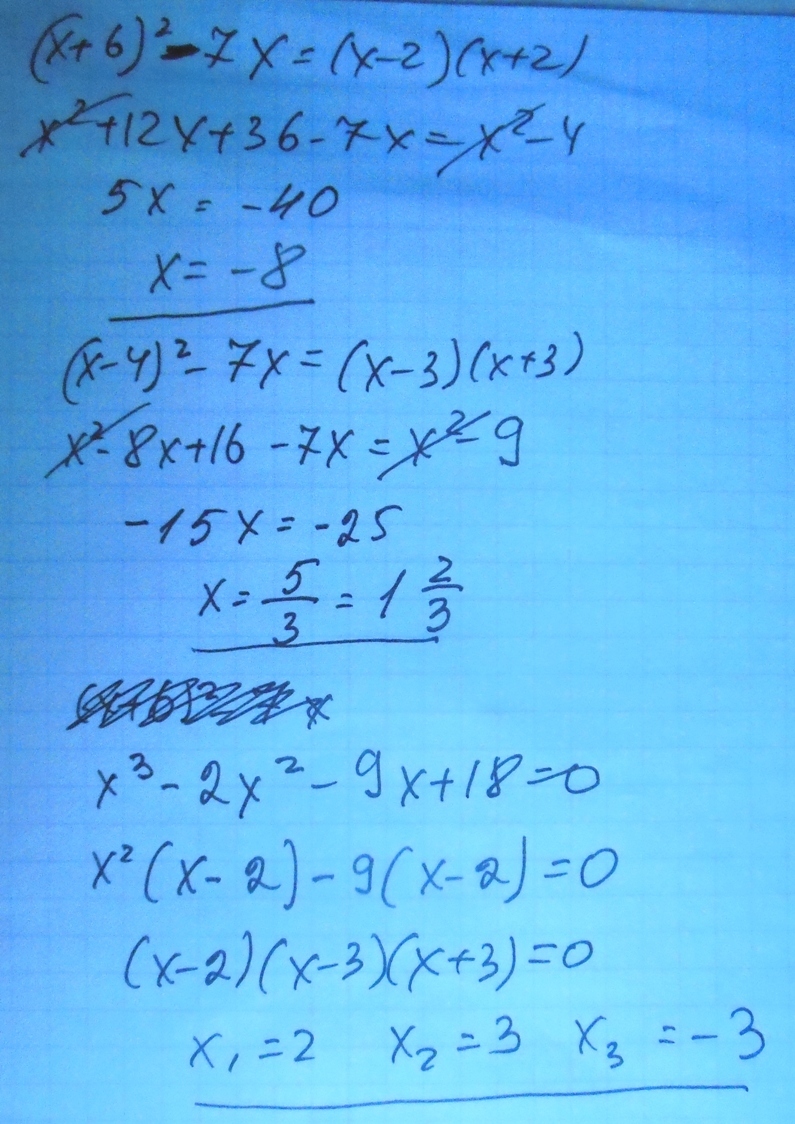 (x+6)²-7x=(x-2)(x+2)
x²+12x+36-7x=x²-4
5x=-40
x=-8
(x-4)²-7x=(x-3)(x+3)
x²-8x+16-7x=x²-9
-15x=-25
x=5/3=1 2/3
x³-2x²-9x+18=0
x²(x-2)-9(x-2)=0
(x-2)(x-3)(x+3)=0
x₁=2 x₂=3 x₃=-3